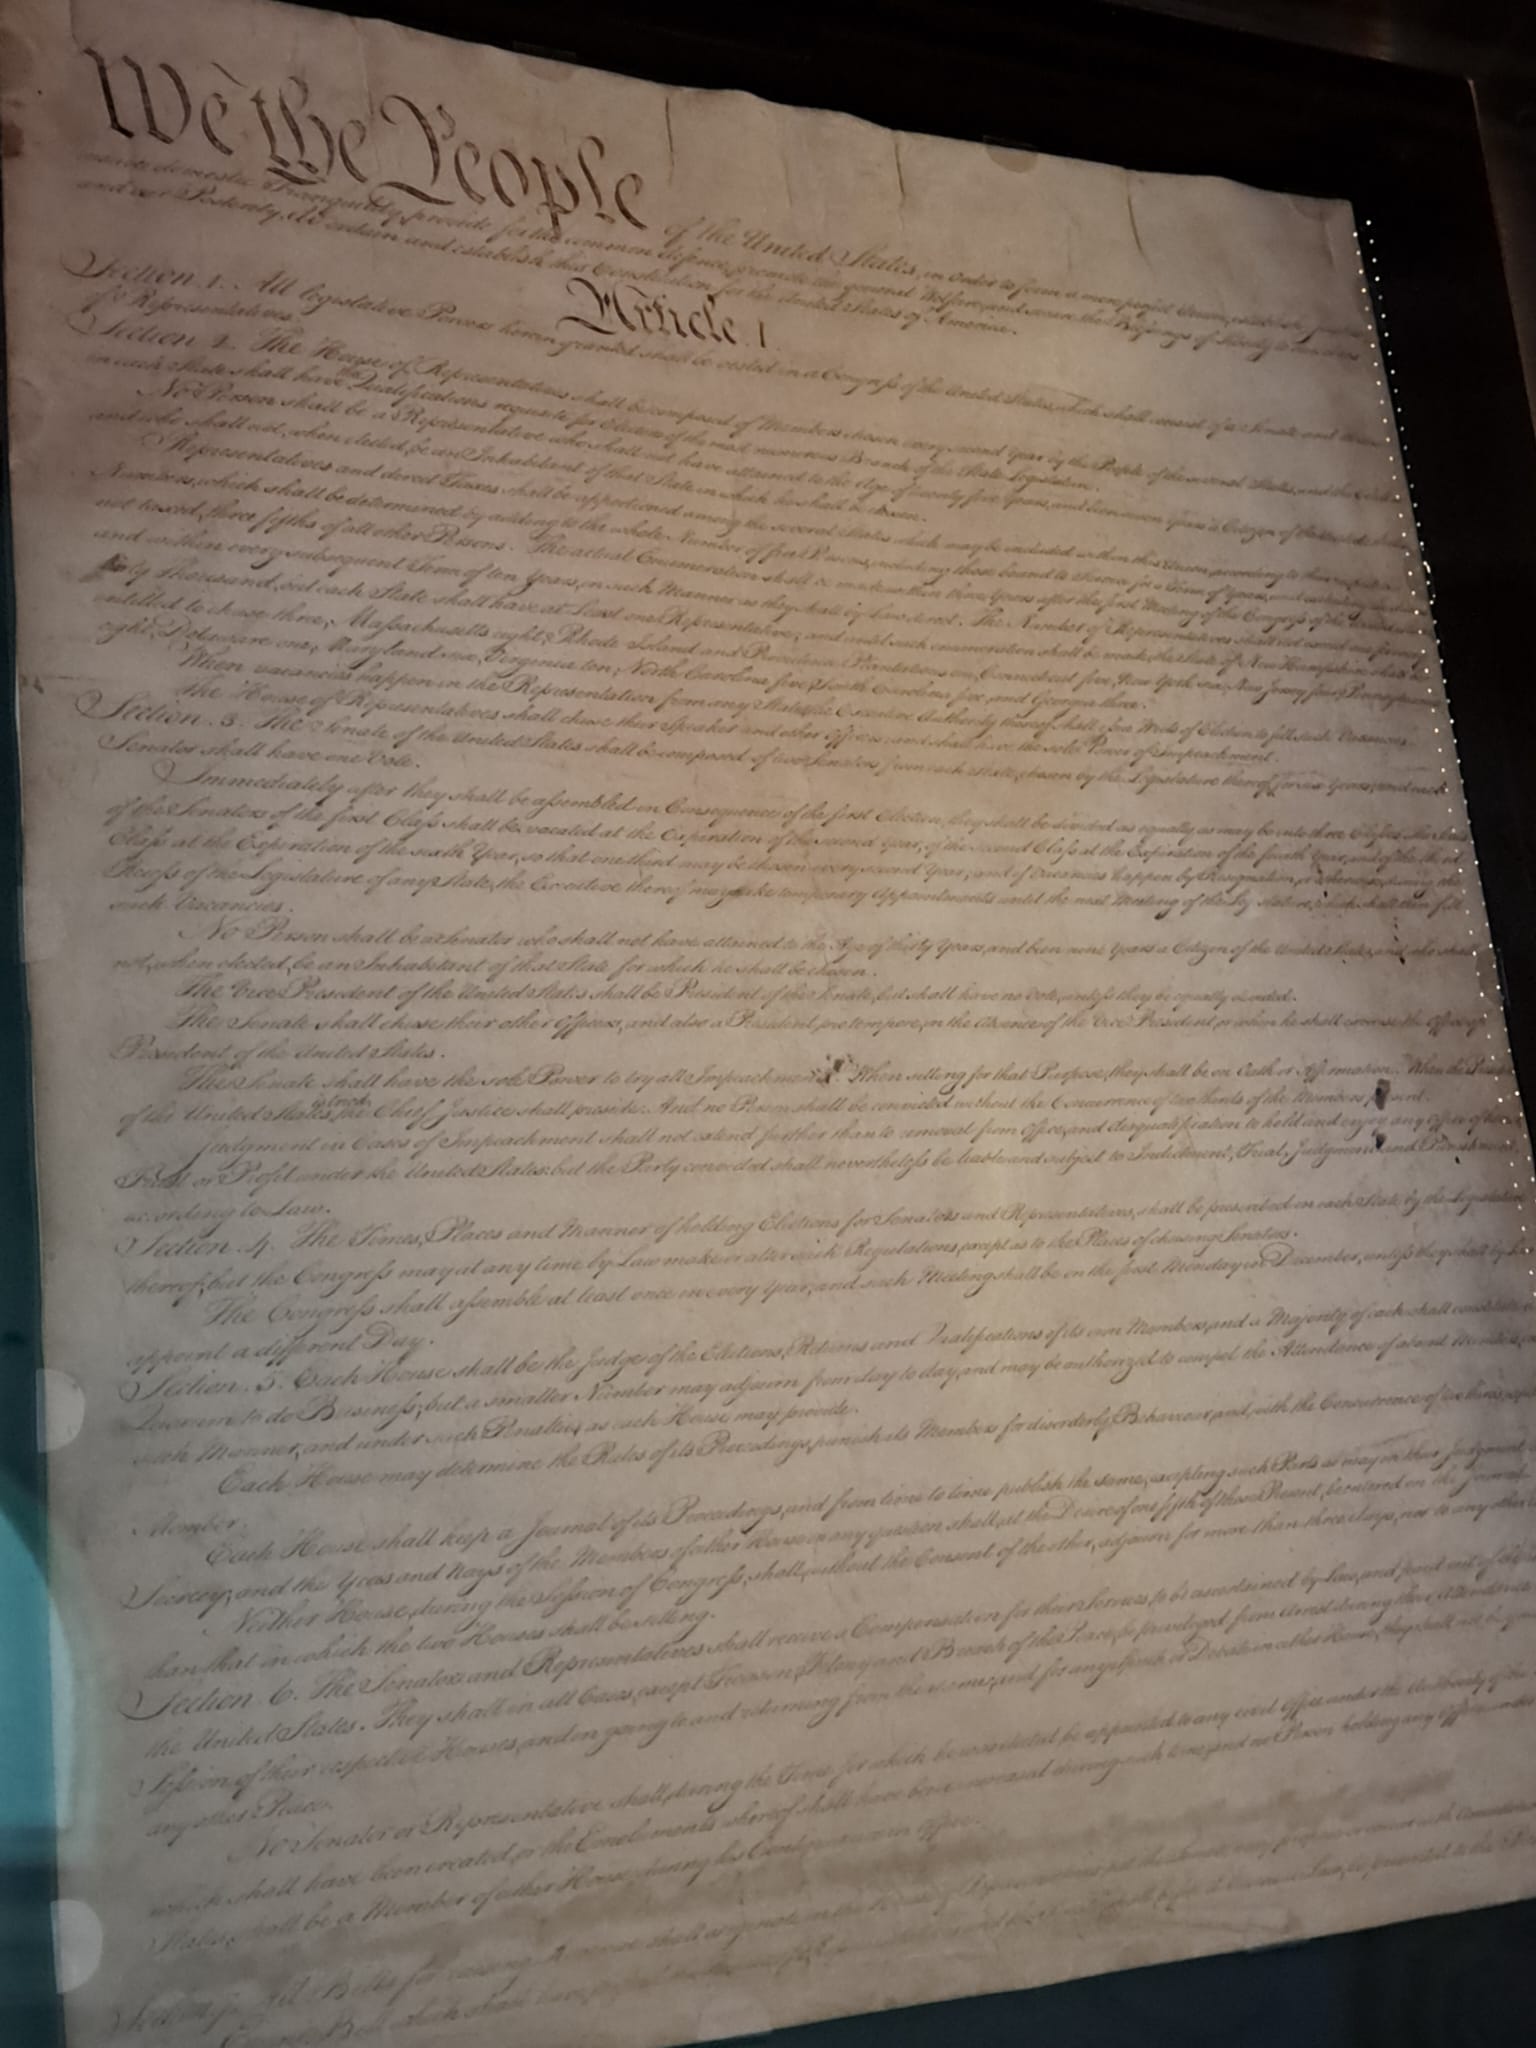 We the People of the United States, in Order to form a more perfect Union, establish Justice,
insure domestic Tranquility, provide for the common defence, promote the general Welfare, and secure the Blessings of Liberty to ourselves
and our Posterity, do ordain and establish this Constitution for the United States of America.
Article. I.
Section. 1. All legislative Powers herein granted shall be vested in a Congress of the United States, which shall consist of a Senate and House
of Representatives.
Section. 2. The House of Representatives shall be composed of Members chosen every second Year by the People of the several States, and the Electors
in each State shall have the Qualifications requisite for Electors of the most numerous Branch of the State Legislature.
No Person shall be a Representative who shall not have attained to the Age of twenty five Years, and been seven Years a Citizen of the United States,
and who shall not, when elected, be an Inhabitant of that State in which he shall be chosen.
Representatives and direct Taxes shall be apportioned among the several States which may be included within this Union, according to their respective
Numbers, which shall be determined by adding to the whole Number of free Persons, including those bound to Service for a Term of Years, and excluding Indians
not taxed, three fifths of all other Persons. The actual Enumeration shall be made within three Years after the first Meeting of the Congress of the United States,
and within every subsequent Term of ten Years, in such Manner as they shall by Law direct. The Number of Representatives shall not exceed one for every
thirty Thousand, but each State shall have at Least one Representative; and until such enumeration shall be made, the State of New Hampshire shall be
entitled to chuse three, Massachusetts eight, Rhode Island and Providence Plantations one, Connecticut five, New York six, New Jersey four, Pennsylvania
eight, Delaware one, Maryland six, Virginia ten, North Carolina five, South Carolina five, and Georgia three.
When vacancies happen in the Representation from any State, the Executive Authority thereof shall issue Writs of Election to fill such Vacancies.
The House of Representatives shall chuse their Speaker and other Officers; and shall have the sole Power of Impeachment.
Section. 3. The Senate of the United States shall be composed of two Senators from each State, chosen by the Legislature thereof, for six Years; and each
Senator shall have one Vote.
Immediately after they shall be assembled in Consequence of the first Election, they shall be divided as equally as may be into three Classes. The Seats
of the Senators of the first Class shall be vacated at the Expiration of the second Year, of the second Class at the Expiration of the fourth Year, and of the third
Class at the Expiration of the sixth Year, so that one third may be chosen every second Year; and if Vacancies happen by Resignation, or otherwise, during the
Recess of the Legislature of any State, the Executive thereof may make temporary Appointments until the next Meeting of the Legislature, which shall then fill
such Vacancies.
No Person shall be a Senator who shall not have attained to the Age of thirty Years, and been nine Years a Citizen of the United States, and who shall
not, when elected, be an Inhabitant of that State for which he shall be chosen.
The Vice President of the United States shall be President of the Senate, but shall have no Vote, unless they be equally divided.
The Senate shall chuse their other Officers, and also a President pro tempore, in the Absence of the Vice President, or when he shall exercise the Office of
President of the United States.
The Senate shall have the sole Power to try all Impeachments. When sitting for that Purpose, they shall be on Oath or Affirmation. When the President
of the United States is tried, the Chief Justice shall preside: And no Person shall be convicted without the Concurrence of two thirds of the Members present.
Judgment in Cases of Impeachment shall not extend further than to removal from Office, and disqualification to hold and enjoy any Office of honor,
Trust or Profit under the United States: but the Party convicted shall nevertheless be liable and subject to Indictment, Trial, Judgment and Punishment,
according to Law.
Section. 4. The Times, Places and Manner of holding Elections for Senators and Representatives, shall be prescribed in each State by the Legislature
thereof; but the Congress may at any time by Law make or alter such Regulations, except as to the Places of chusing Senators.
The Congress shall assemble at least once in every Year, and such Meeting shall be on the first Monday in December, unless they shall by Law
appoint a different Day.
Section. 5. Each House shall be the Judge of the Elections, Returns and Qualifications of its own Members, and a Majority of each shall constitute a
Quorum to do Business; but a smaller Number may adjourn from day to day, and may be authorized to compel the Attendance of absent Members, in
such Manner, and under such Penalties as each House may provide.
Each House may determine the Rules of its Proceedings, punish its Members for disorderly Behaviour, and, with the Concurrence of two thirds, expel a
Member.
Each House shall keep a Journal of its Proceedings, and from time to time publish the same, excepting such Parts as may in their Judgment
Secrecy; and the Yeas and Nays of the Members of either House on any question shall, at the Desire of one fifth of those Present, be entered on the Journal.
Neither House, during the Session of Congress, shall, without the Consent of the other, adjourn for more than three days, nor to any other
than that in which the two Houses shall be sitting.
Section. 6. The Senators and Representatives shall receive a Compensation for their Services, to be ascertained by Law, and paid out of
the United States. They shall in all Cases, except Treason, Felony and Breach of the Peace, be privileged from Arrest during their Attendance
Session of their respective Houses, and in going to and returning from the same; and for any Speech or Debate in either House, they shall not be
any other Place.
No Senator or Representative shall, during the Time for which he was elected, be appointed to any civil Office under the Authority of the
which shall have been created, or the Emoluments whereof shall have been encreased during such time; and no Person holding any Office under
States, shall be a Member of either House during his Continuance in Office.
Section. 7. All Bills for raising Revenue shall originate in the House of Representatives; but the Senate may propose or concur with Amendments
Every Bill which shall have passed the House of Representatives and the Senate, shall, before it become a Law, be presented to the